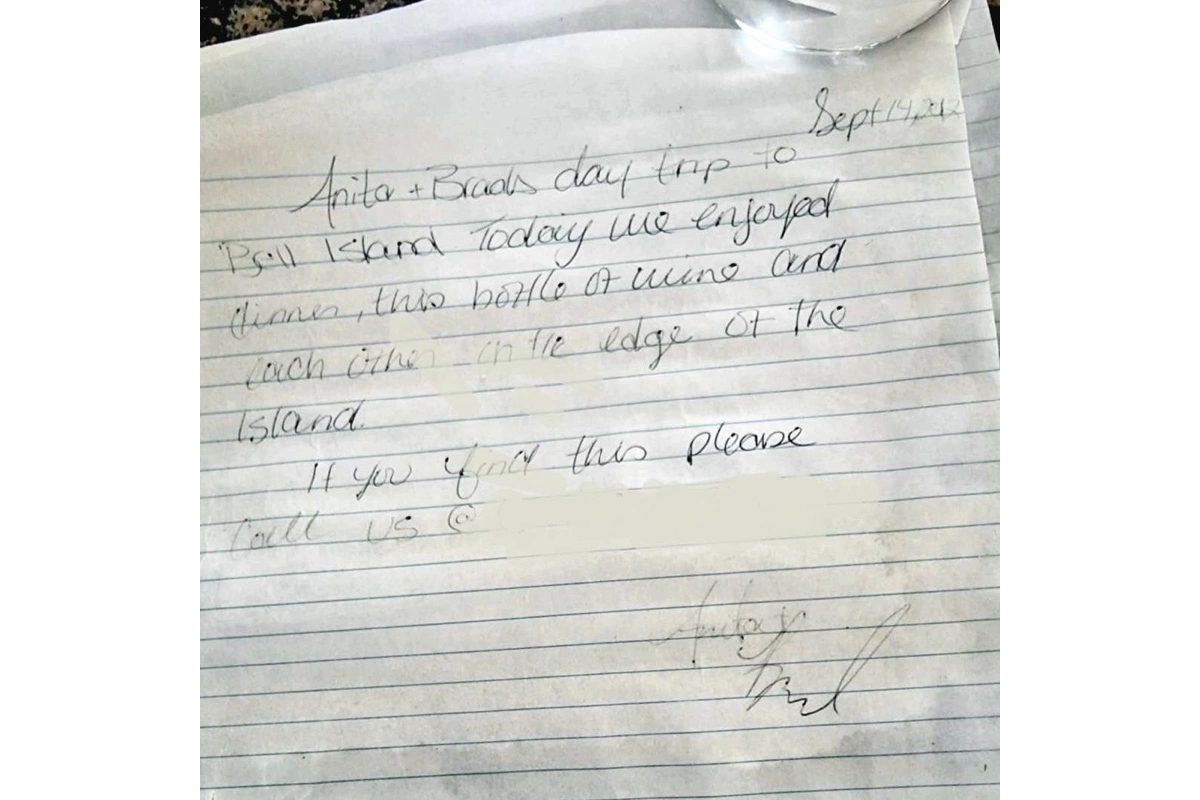 Sept 14, 2012
Anita + Brads day trip to
Bell Island Today we enjoyed
dinner, this bottle of wine and
each other on the edge of the
Island.
If you find this please
Call us @
Anita &
Brad